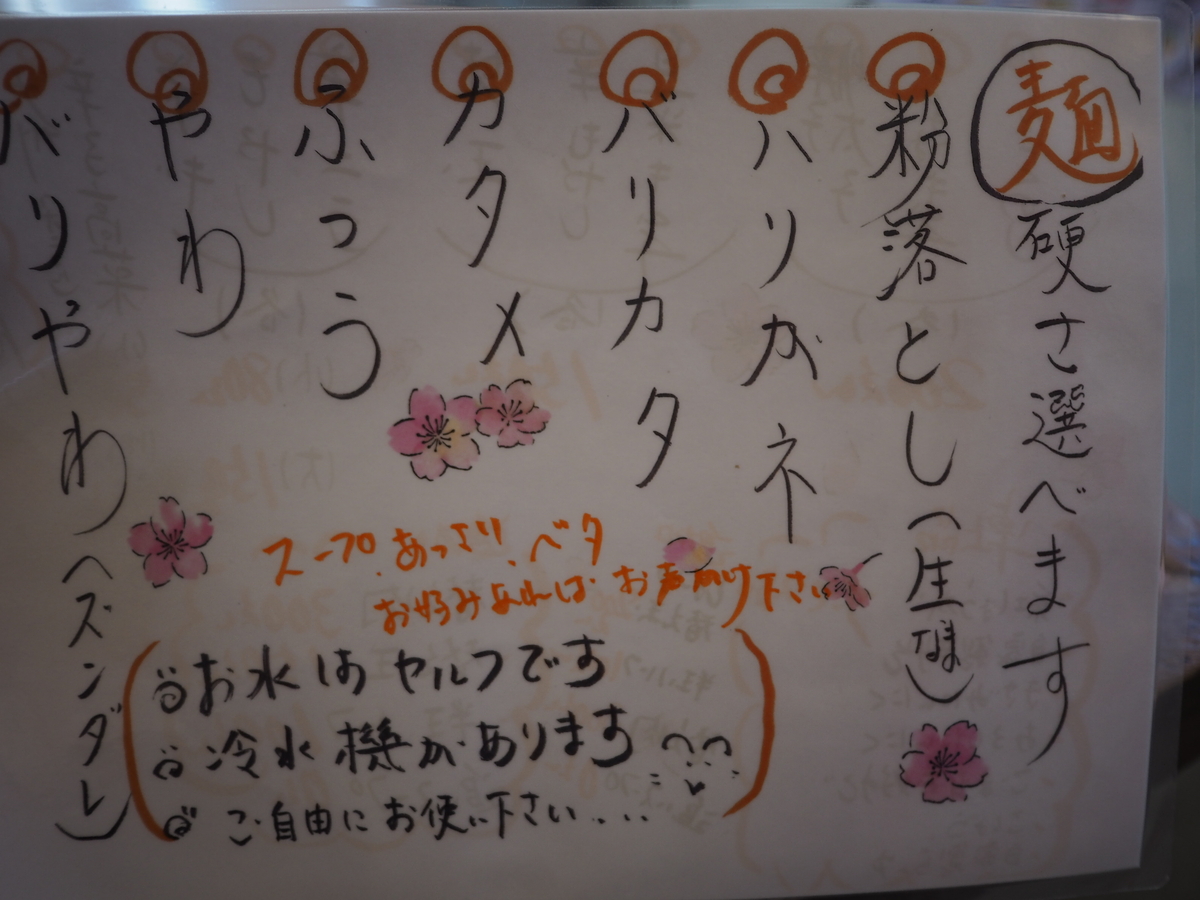 麺硬さ選べます
粉落とし(生麺)
ハリガネ
バリカタ
カタメ
ふつう
やわ
ばりやわ(ズンダレ)
スープ、あっさり、ベタ
お好みあればお声掛け下さい
お水はセルフです
冷水機があります
ご自由にお使い下さい....